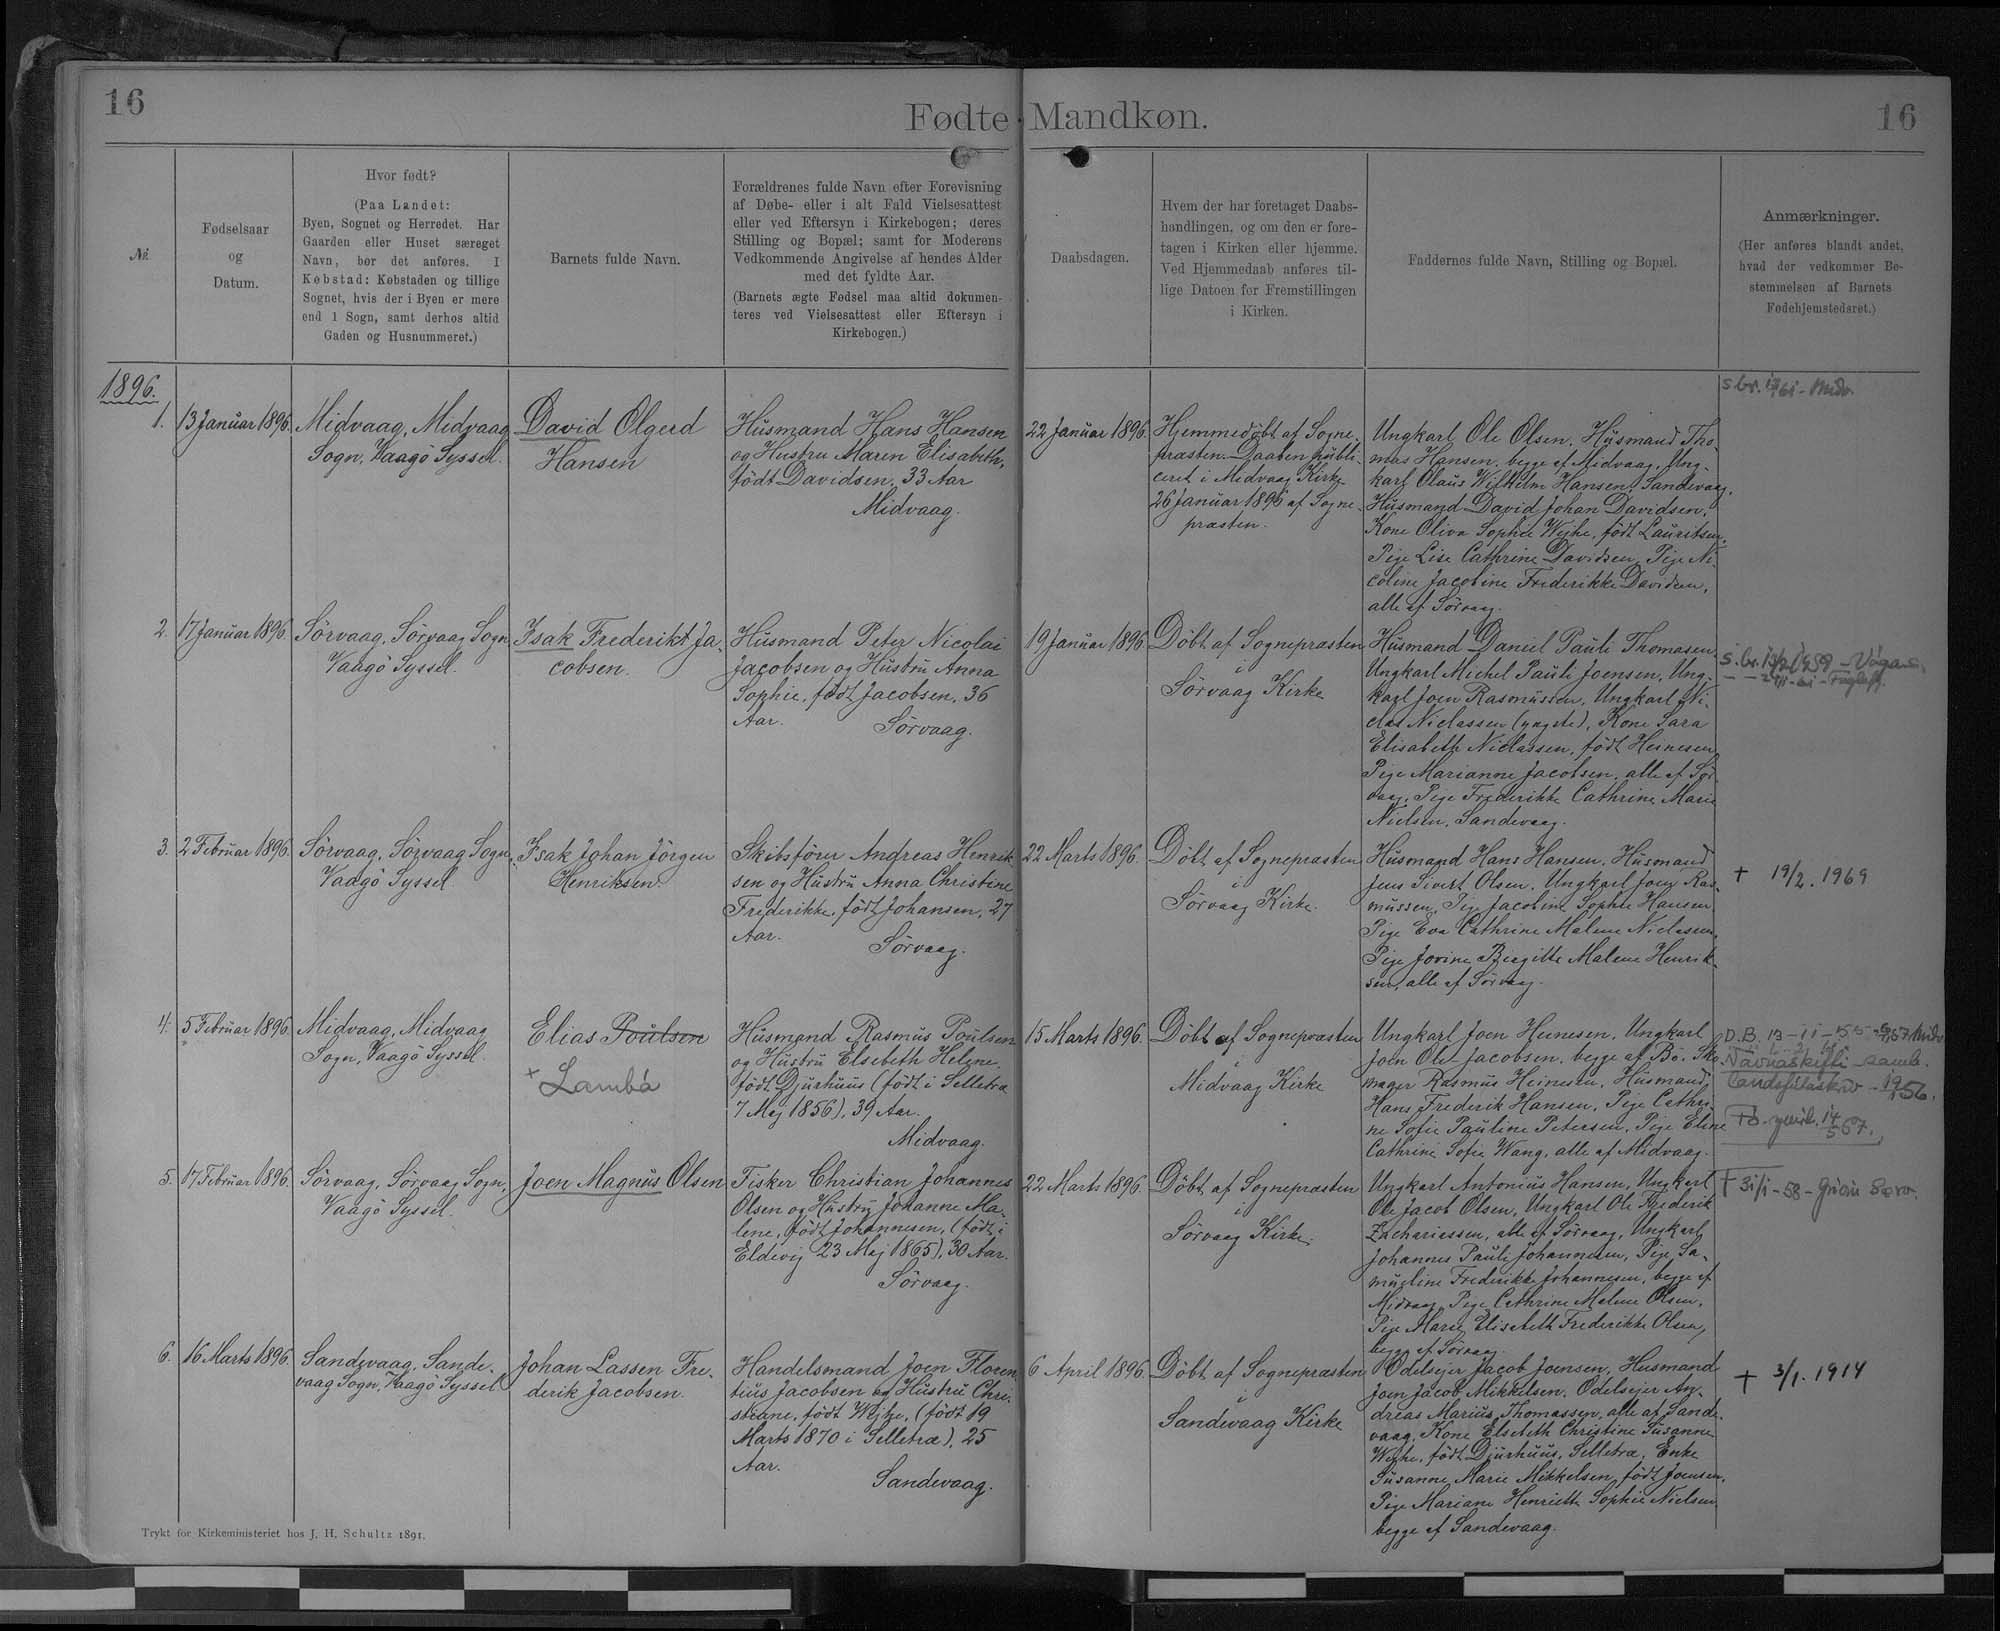 16
Fødte Mandkøn.
16
№
Fødselsaar
og
Datum.
Hvor født?
(Paa Landet:
Byen, Sognet og Herredet. Har
Gaarden eller Huset særeget
Navn, bør det anføres. I
Købstad: Købstaden og tillige
Sognet, hvis der i Byen er mere
end 1 Sogn, samt derhos altid
Gaden og Husnummeret.)
Barnets fulde Navn.
Forældrenes fulde Navn efter Forevisning
af Døbe- eller i alt Fald Vielsesattest
eller ved Eftersyn i Kirkebogen; deres
Stilling og Bopæl; samt for Moderens
Vedkommende Angivelse af hendes Alder
med det fyldte Aar.
(Barnets ægte Fødsel maa altid dokumen-
teres ved Vielsesattest eller Eftersyn i
Kirkebogen.)
Daabsdagen.
Hvem der har foretaget Daabs-
handlingen, og om den er fore-
tagen i Kirken eller hjemme.
Ved Hjemmedaab anføres til-
lige Datoen for Fremstillingen
i Kirken.
Faddernes fulde Navn, Stilling og Bopæl.
Anmærkninger.
(Her anføres blandt andet,
hvad der vedkommer Be-
stemmelsen af Barnets
Fødehjemstedsret.)
1896.
1.
13 Januar 1896.
Midvaag, Midvaag
Sogn, Vaagö Syssel.
David Olgerd
Hansen
Husmand Hans Hansen
og Hustru Maren Elisabeth,
födt Davidsen, 33 Aar
Midvaag.
22 Januar 1896.
Hjemmedöbt af Sogne-
præsten. Daaben publi-
ceret i Midvaag Kirke
26 Januar 1896 af Sogne-
præsten.
Ungkarl Ole Olsen, Husmand Tho-
mas Hansen, begge af Midvaag, Ung-
karl Olaus Wilhelm Hansen, Sandevaag,
Husmand David Johan Davidsen,
Kone Oliva Sophie Wejhe, født Lauritsen,
Pige Lise Cathrine Davidsen, Pige Ni-
coline Jacobine Frederikke Davidsen,
alle af Sörvaag.
s. br. - Midv.
2.
17 Januar 1896.
Sörvaag, Sörvaag Sogn,
Vaagö Syssel.
Isak Frederikt Ja-
cobsen.
Husmand Peter Nicolai
Jacobsen og Hustru Anna
Sophie, født Jacobsen, 36
Aar.
Sörvaag.
19 Januar 1896.
Döbt af Sognepræsten
i
Sörvaag Kirke
Husmand Daniel Pauli Thomasen
Ungkarl Michel Pauli Joensen, Ung-
karl Joen Rasmussen, Ungkarl Ni-
clas Niclassen (yngste), Kone Sara
Elisabeth Niclassen, født Heinesen,
Pige Marianne Jacobsen, alle af Sör-
vaag, Pige Frederikke Cathrine Marie
Nielsen, Sandevaag.
s. br.
3.
2 Februar 1896.
Sörvaag, Sörvaag Sogn,
Vaagö Syssel.
Isak Johan Jörgen
Henriksen.
Skibsförer Andreas Henrik-
sen og Hustru Anna Christine
Frederikke, födt Johansen, 27
Aar.
Sörvaag.
22 Marts 1896.
Döbt af Sognepræsten
i
Sörvaag Kirke.
Husmand Hans Hansen, Husmand
Jens Sivert Olsen, Ungkarl Joen Ras-
mussen, Pige Jacobine Sophie Hansen
Pige Eva Cathrine Malene Niclassen,
Pige Jovine Birgitte Malene Henrik-
sen, alle af Sörvaag.
+ 19/2. 1969
4.
5 Februar 1896.
Midvaag, Midvaag
Sogn, Vaagö Syssel.
Elias Poulsen
+ Lambá
Husmand Rasmus Poulsen
og Hustru Elsebeth Helene,
födt Djurhuus (født i Selletræ
7 Maj 1856), 39 Aar.
Midvaag.
15 Marts 1896.
Döbt af Sognepræsten
i
Midvaag Kirke
Ungkarl Joen Heinesen, Ungkarl
Joen Ole Jacobsen, begge af Bö. Sko-
mager Rasmus Heinesen, Husmand
Hans Frederik Hansen, Pige Cathri-
ne Sofie Pauline Petersen, Pige Eline
Cathrine Sofie Wang, alle af Midvaag.
D.B. 13-11-55
Navnaskifti samb.
1956.
5.
17 Februar 1896.
Sörvaag, Sörvaag Sogn,
Vaagö Syssel.
Joen Magnus Olsen
Fisker Christian Johannes
Olsen og Hustru Johanne Ma-
lene, født Johannesen, (født i
Eldevig 23 Maj 1865), 30 Aar.
Sörvaag.
22 Marts 1896.
Döbt af Sognepræsten
i
Sörvaag Kirke.
Ungkarl Antonius Hansen, Ungkarl
Ole Jacob Olsen, Ungkarl Ole Frederik
Zachariassen, alle af Sörvaag, Ungkarl
Johannes Pauli Johannesen, Pige Sa-
mueline Frederikke Johannesen, begge af
Midvaag, Pige Cathrine Malene Olsen,
Pige Marie Elisabeth Frederikke Olsen,
begge af Sörvaag.
+ 31/1-58 -
6.
16 Marts 1896.
Sandevaag, Sande-
vaag Sogn, Vaagö Syssel
Johan Lassen Fre-
derik Jacobsen.
Handelsmand Joen Floren-
tius Jacobsen og Hustru Chri-
stiane, født Wejhe, (født 19
Marts 1870 i Selletræ), 25
Aar.
Sandevaag.
6 April 1896.
Döbt af Sognepræsten
i
Sandevaag Kirke
Odelsejer Jacob Joensen, Husmand
Joen Jacob Mikkelsen, Odelsejer An-
dreas Marius Thomassen, alle af Sande-
vaag, Kone Elsebeth Christine Susanne
Wejhe, født Djurhuus, Selletræ, Enke
Susanne Marie Mikkelsen, født Joensen,
Pige Mariane Henriette Sophie Nielsen,
begge af Sandevaag.
+ 3/1. 1914
Trykt for Kirkeministeriet hos J. H. Schultz 1891.